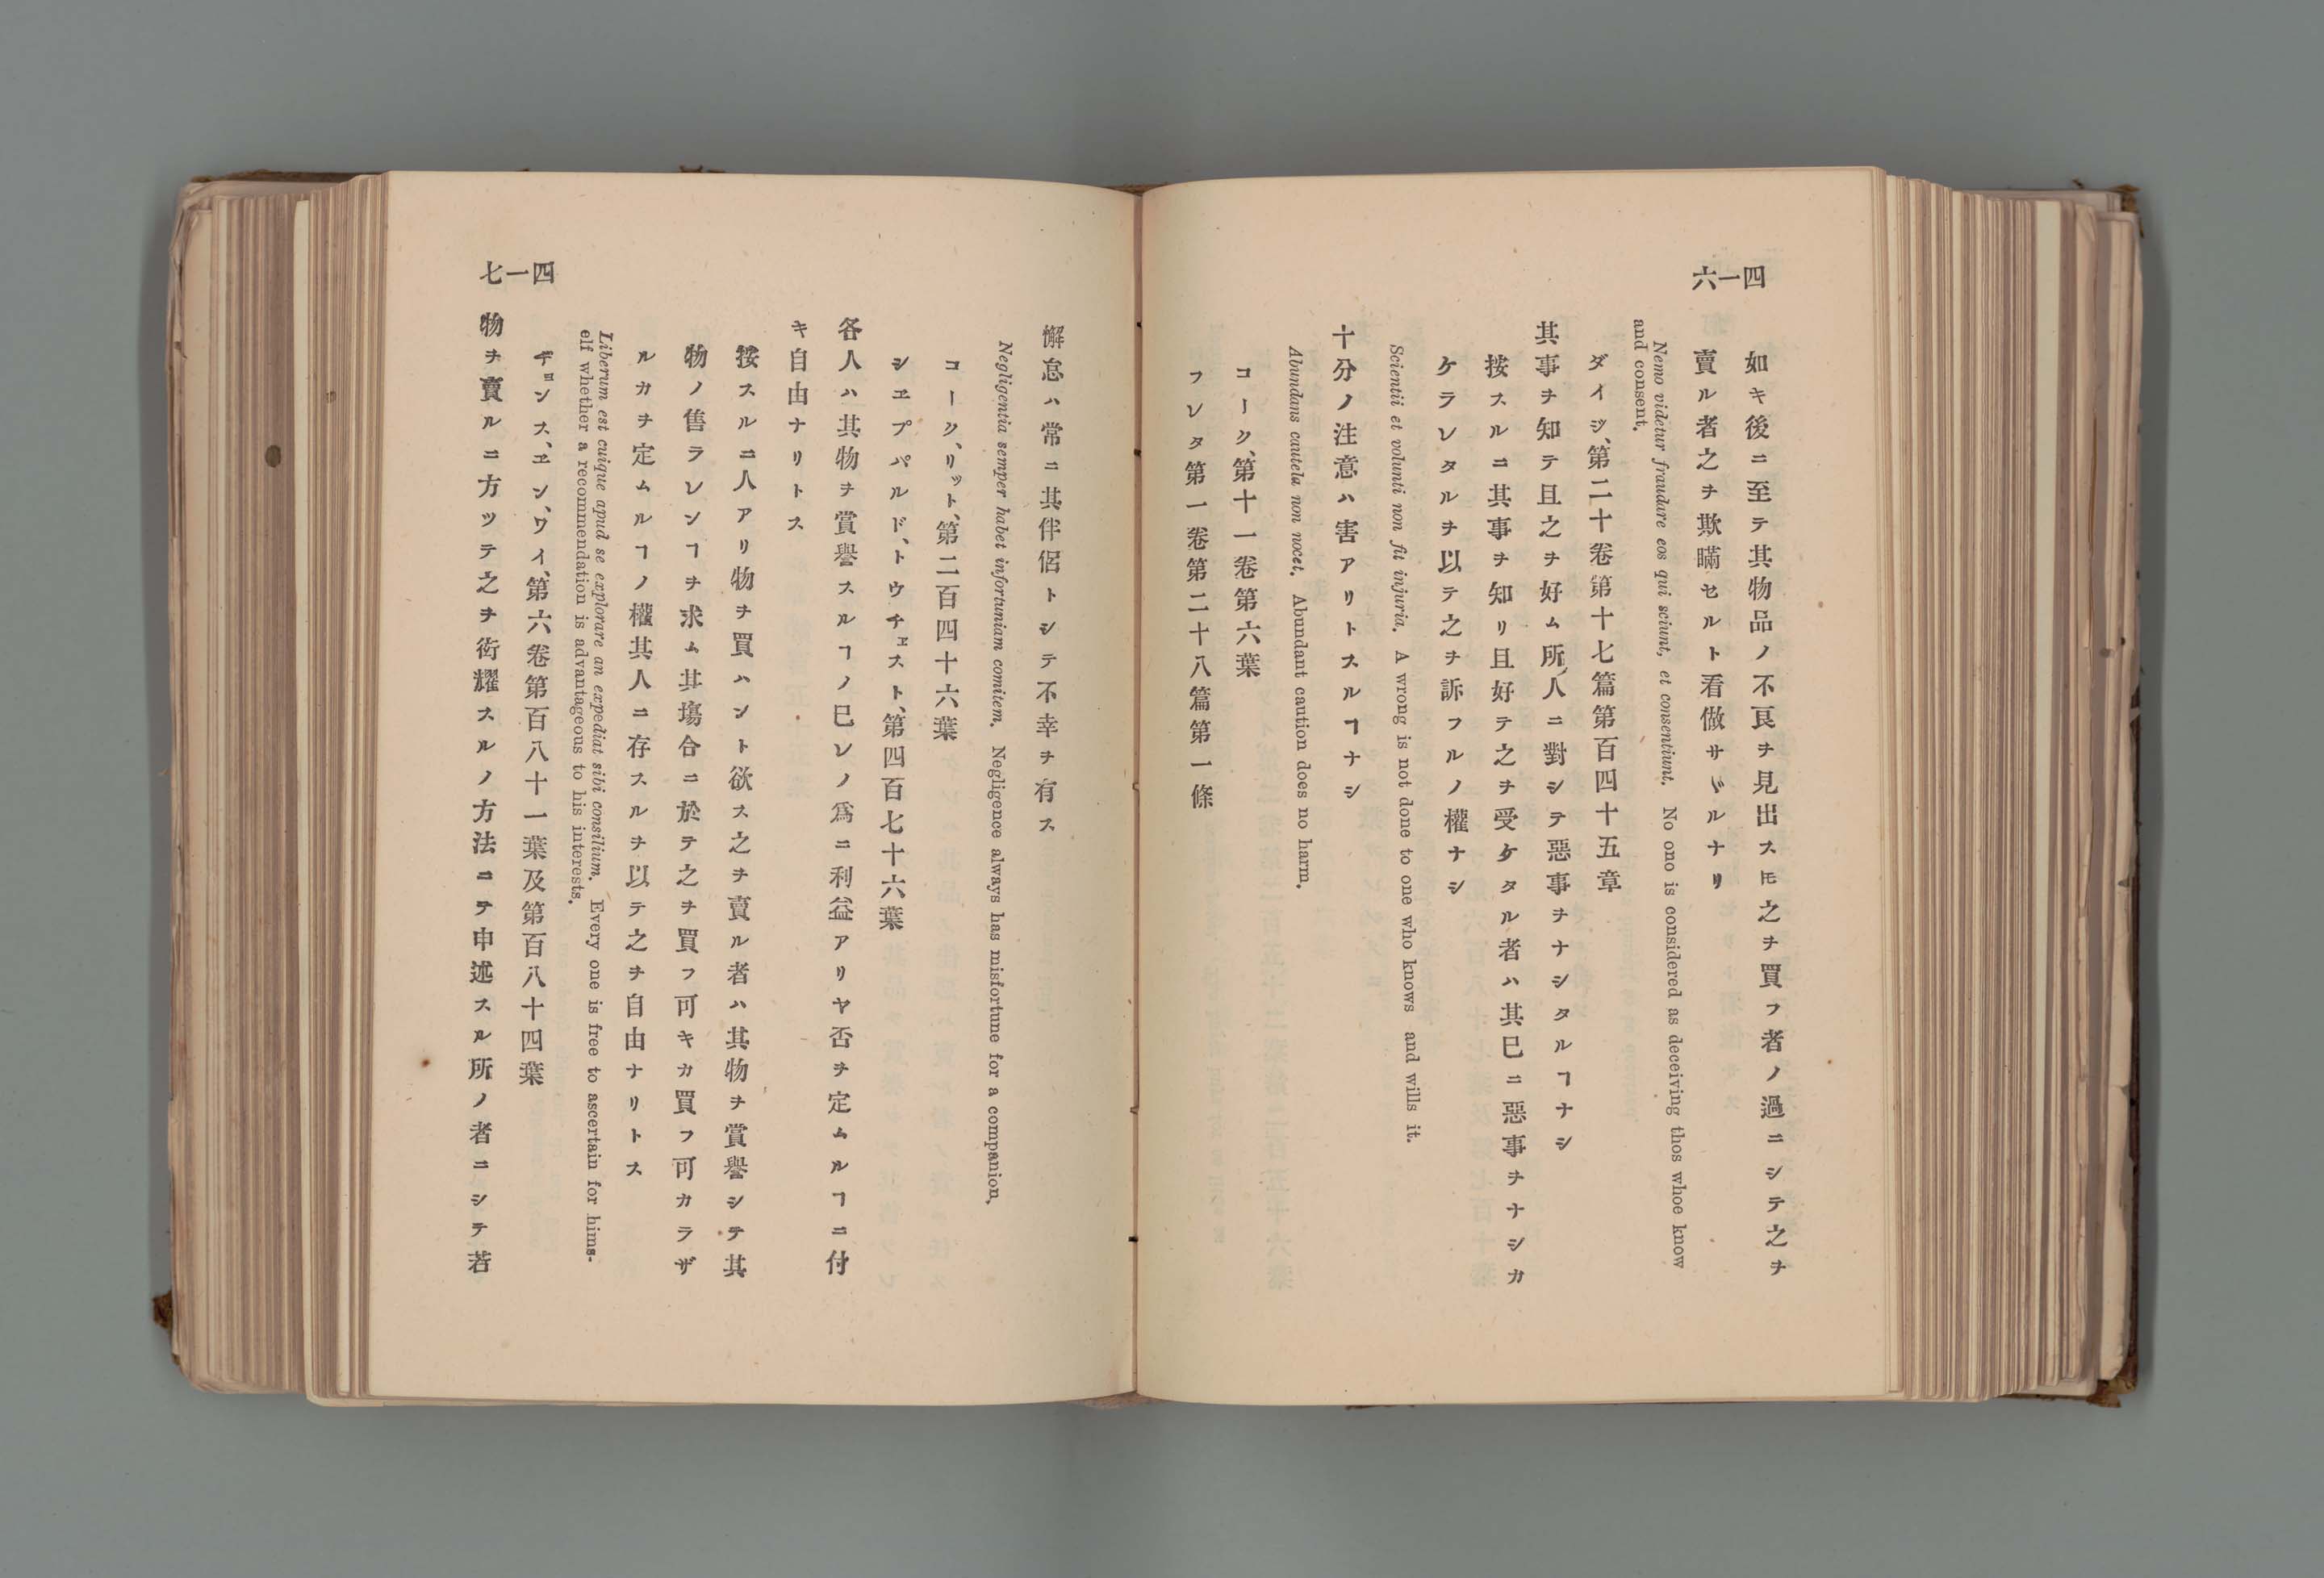 四一六
如キ後ニ至テ其物品ノ不良ヲ見出ス𪜈之ヲ買フ者ノ過ニシテ之ヲ
賣ル者之ヲ欺瞞セルト看做サヾルナリ
Nemo videtur fraudare eos qui sciunt, et consentiunt. No ono is considered as deceiving thos whoe know
and consent.
ダイジ、第二十卷第十七篇第百四十五章
其事ヲ知テ且之ヲ好ム所ノ人ニ對シテ惡事ヲナシタルヿナシ
按スルニ其事ヲ知リ且好テ之ヲ受ケタル者ハ其已ニ惡事ヲナシカ
ケラレタルヲ以テ之ヲ訴フルノ權ナシ
Scientii et volunti non fit injuria. A wrong is not done to one who knows and wills it.
十分ノ注意ハ害アリトスルヿナシ
Abundans cautela non nocet. Abundant caution does no harm.
コーク、第十一卷第六葉
フレタ第一卷第二十八篇第一條
四一七
懈怠ハ常ニ其伴侶トシテ不幸ヲ有ス
Negligentia semper habet infortuniam comitem. Negligence always has misfortune for a companion.
コーク、リット、第二百四十六葉
シヱプパルド、トウチェスト、第四百七十六葉
各人ハ其物ヲ賞譽スルヿノ已レノ爲ニ利益アリヤ否ヲ定ムルヿニ付
キ自由ナリトス
按スルニ人アリ物ヲ買ハント欲ス之ヲ賣ル者ハ其物ヲ賞譽シテ其
物ノ售ラレンヿヲ求ム其塲合ニ於テ之ヲ買フ可キカ買フ可カラザ
ルカヲ定ムルヿノ權其人ニ存スルヲ以テ之ヲ自由ナリトス
Liberum est cuique apud se explorare an expediat sibi consilium. Every one is free to ascertain for hims-
elf whether a recommendation is advantageous to his interests.
ヂョンス、ヱン、ワイ、第六卷第百八十一葉及第百八十四葉
物ヲ賣ルニ方ツテ之ヲ衒耀スルノ方法ニテ申述スル所ノ者ニシテ若